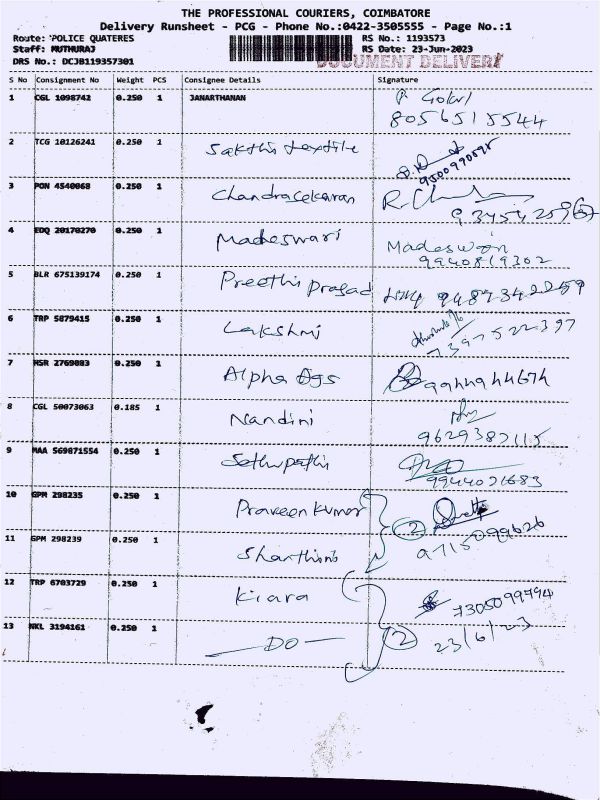 THE PROFESSIONAL COURIERS, COIMBATORE
Delivery Runsheet - PCG - Phone No.:0422-3505555 - Page No.:1
Route: POLICE QUATERES RS No.: 1193573
Staff: MUTHURAJ RS Date: 23-Jun-2023
DRS No.: DCJB119357301 DOCUMENT DELIVERY
S No Consignment No Weight PCS Consignee Details Signature
1 CGL 1098742 0.250 1 JANARTHANAN P Gokul
8056515544
2 TCG 10126241 0.250 1 Sakthi textile
3 PON 4540068 0.250 1 Chandrasekaran
4 EDQ 20170270 0.250 1 Madeswari Madeswari
9940819302
5 BLR 675139174 0.250 1 Preethi prasad
6 TRP 5879415 0.250 1 Lakshmi
7397522397
7 HSR 2769083 0.250 1 Alpha Ags 9944944674
8 CGL 50073063 0.185 1 Nandini
9629387115
9 MAA 569871554 0.250 1 Sethupathi
9944021683
10 GPM 298235 0.250 1 Praveen kumar 2
11 GPM 298239 0.250 1 9715099626
12 TRP 6703729 0.250 1 Kiara 7305099794
13 NKL 3194161 0.250 1 DO 2 23/6/23